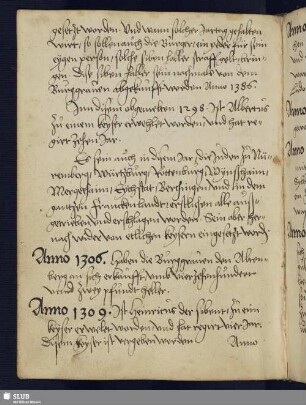 gesetzt worden Und wann solcher Jartag gehalten
wirt, so sollen auch die Burger ein yeder für sein
eygen person, solche siben haller
Dise siben haller sein nachmals von dem
Burggrauen abgekaufft worden Anno 1386.
In disem obgemelten 1298. Ist Albertus
Zu einem keyser erwehlet worden, und hat re¬
girt zehen Jar.
Es sein auch in disem Jar, die Juden zu Nü¬
remberg, Würtzburg, Rottenburg, Winsshaim,
Mergethaim, Bechingen, und in dem
gantzen Franckenlandt, erstlichen alle auss¬
getrieben und erschlagen worden. Sein aber her¬
nach wider von etlichen keysern eingesetzt word.
Anno 1306. Haben die Burggrauen den Alten¬
berg an sich erkaufft, umb vier
und zwey pfundt heller.
Anno 1309. Ist Henricus der sibent zu eim
keyser erwelet worden und hat regirt vier Jar.
Disem keyser ist vergeben worden.
Anno
SLUB